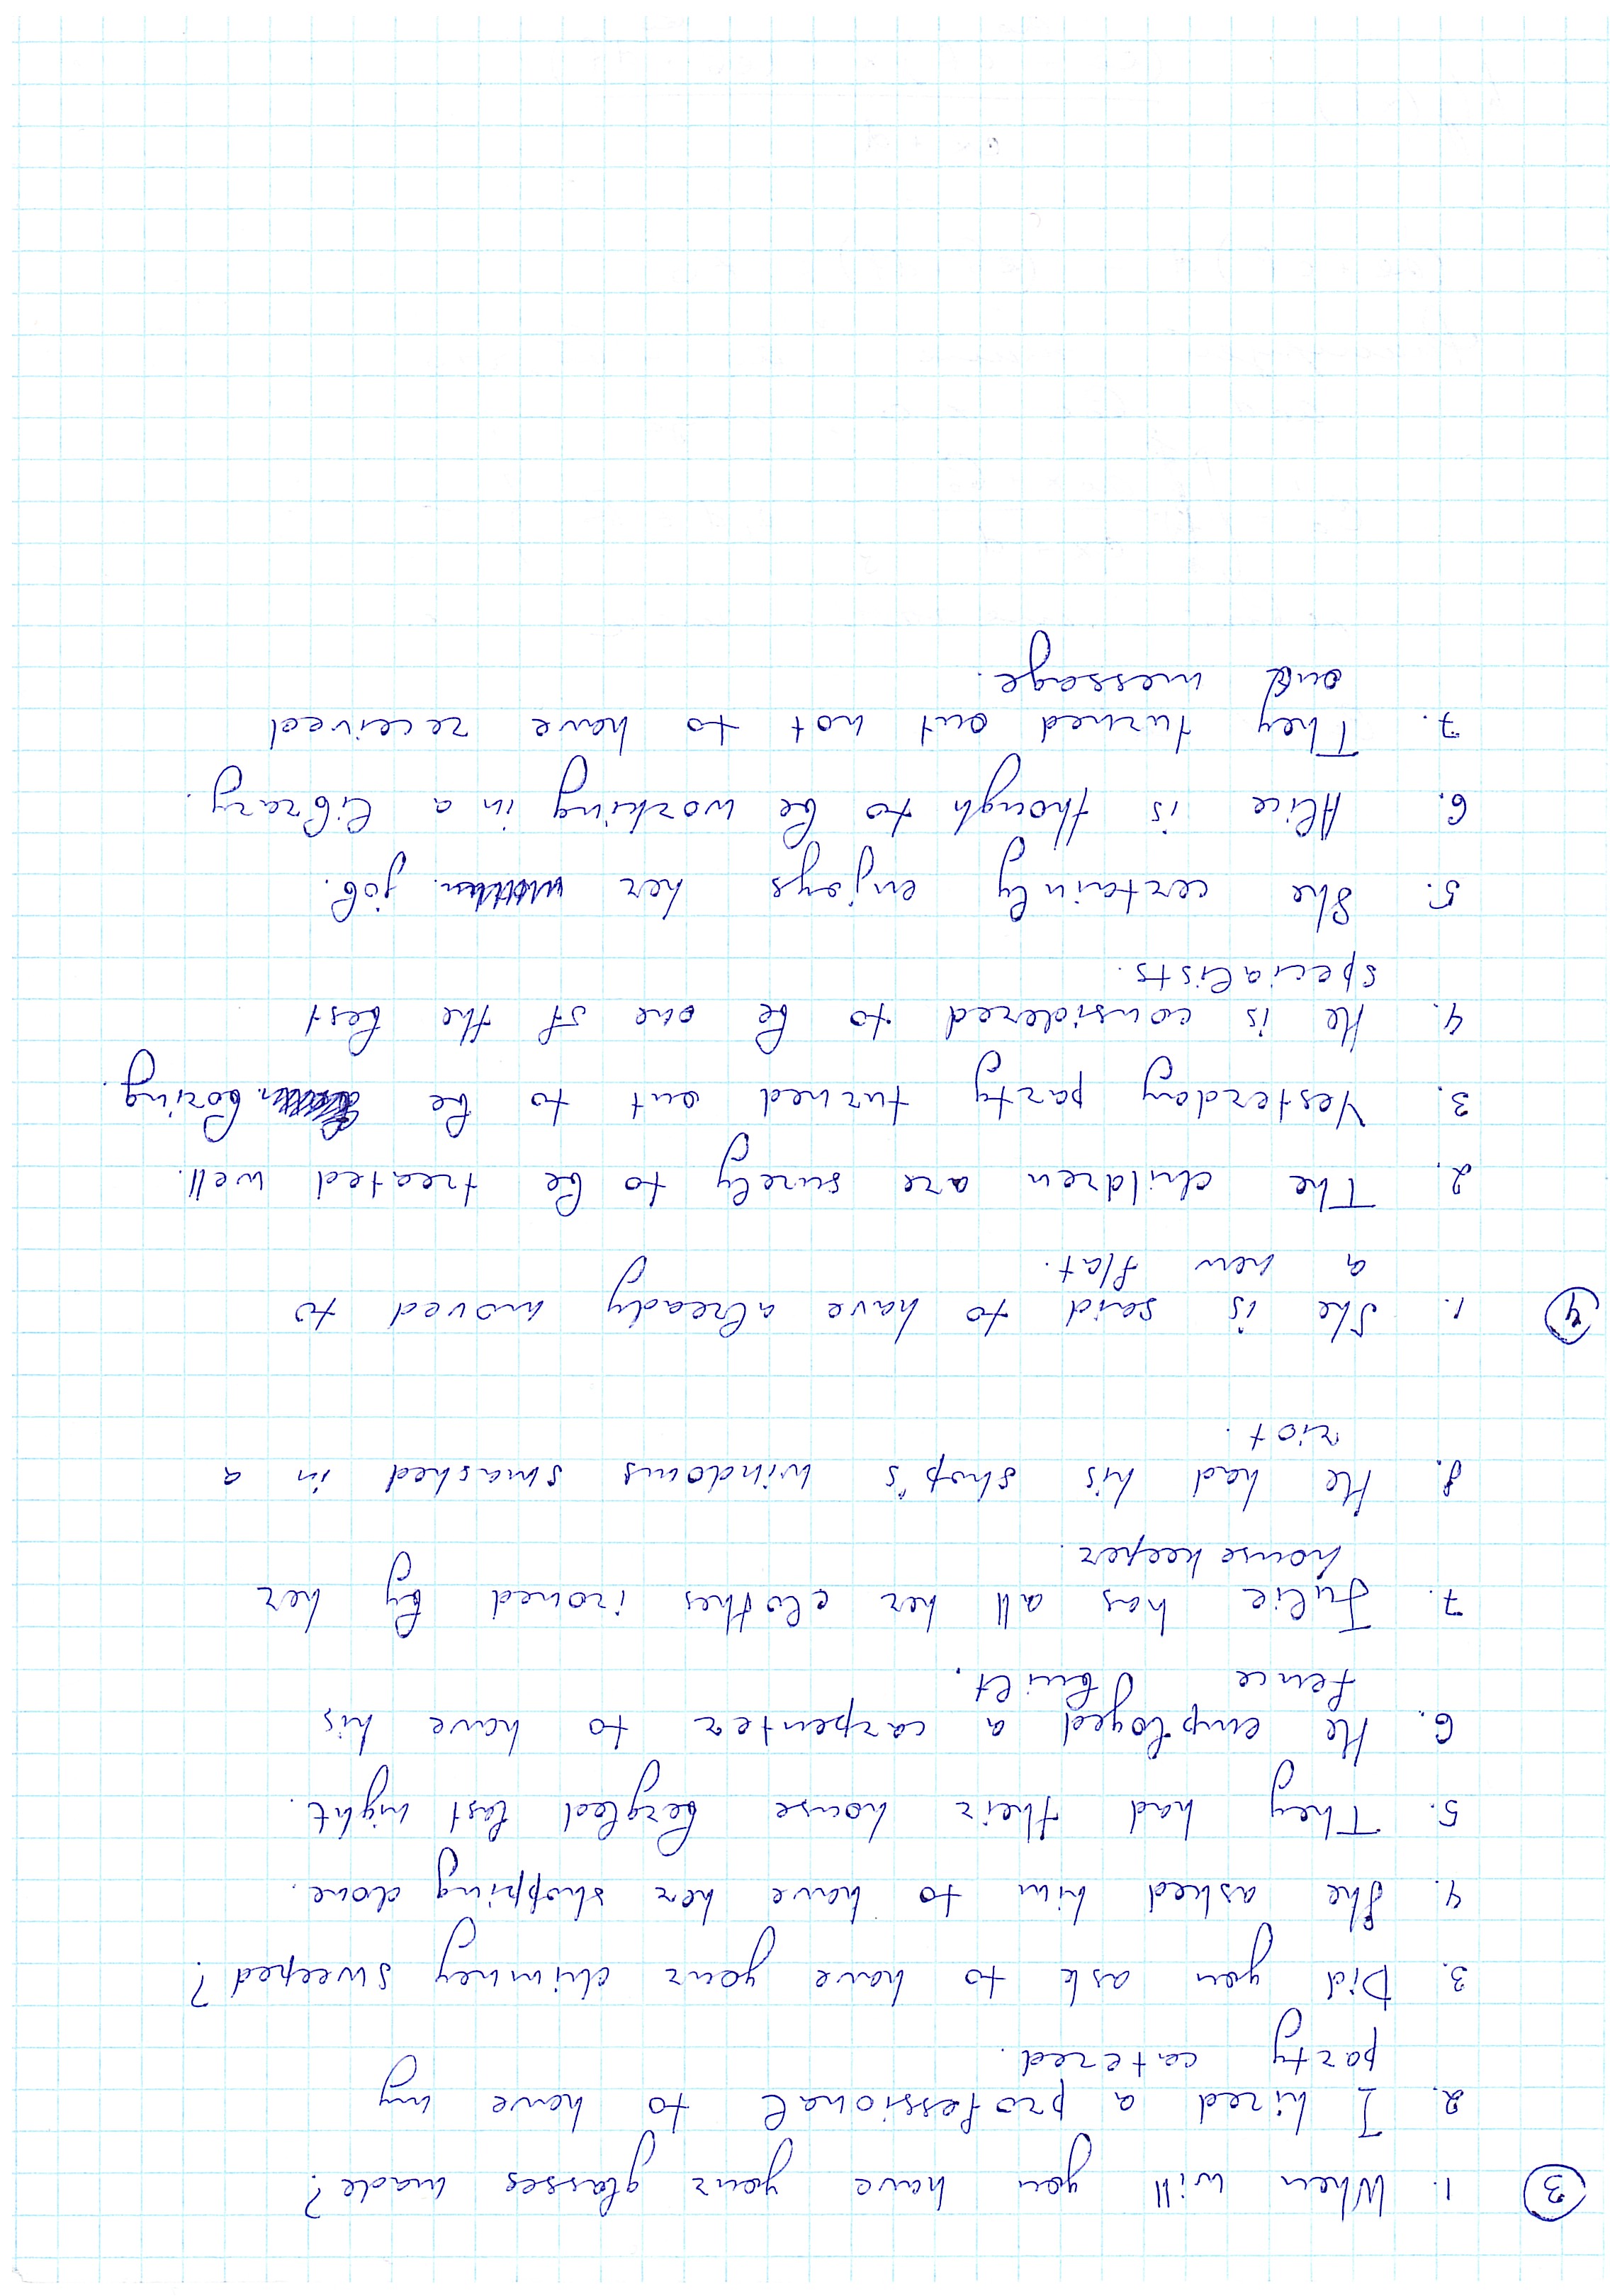 3 1. When will you have your glasses made?
2. I hired a professional to have my
party catered.
3. Did you ask to have your chimney sweeped?
4. She asked him to have her shopping done.
5. They had their house bergled last night.
6. He employed a carpenter to have his
fence built.
7. Julie has all her clothes ironed by her
housekeeper.
8. He had his shop's windows smashed in a
riot.
4 1. She is said to have already moved to
a new flat.
2. The children are surely to be treated well.
3. Yesterday party turned out to be boring.
4. He is considered to be one of the best
specialists.
5. She certainly enjoys her job.
6. Alice is though to be working in a library.
7. They turned out not to have received
our message.